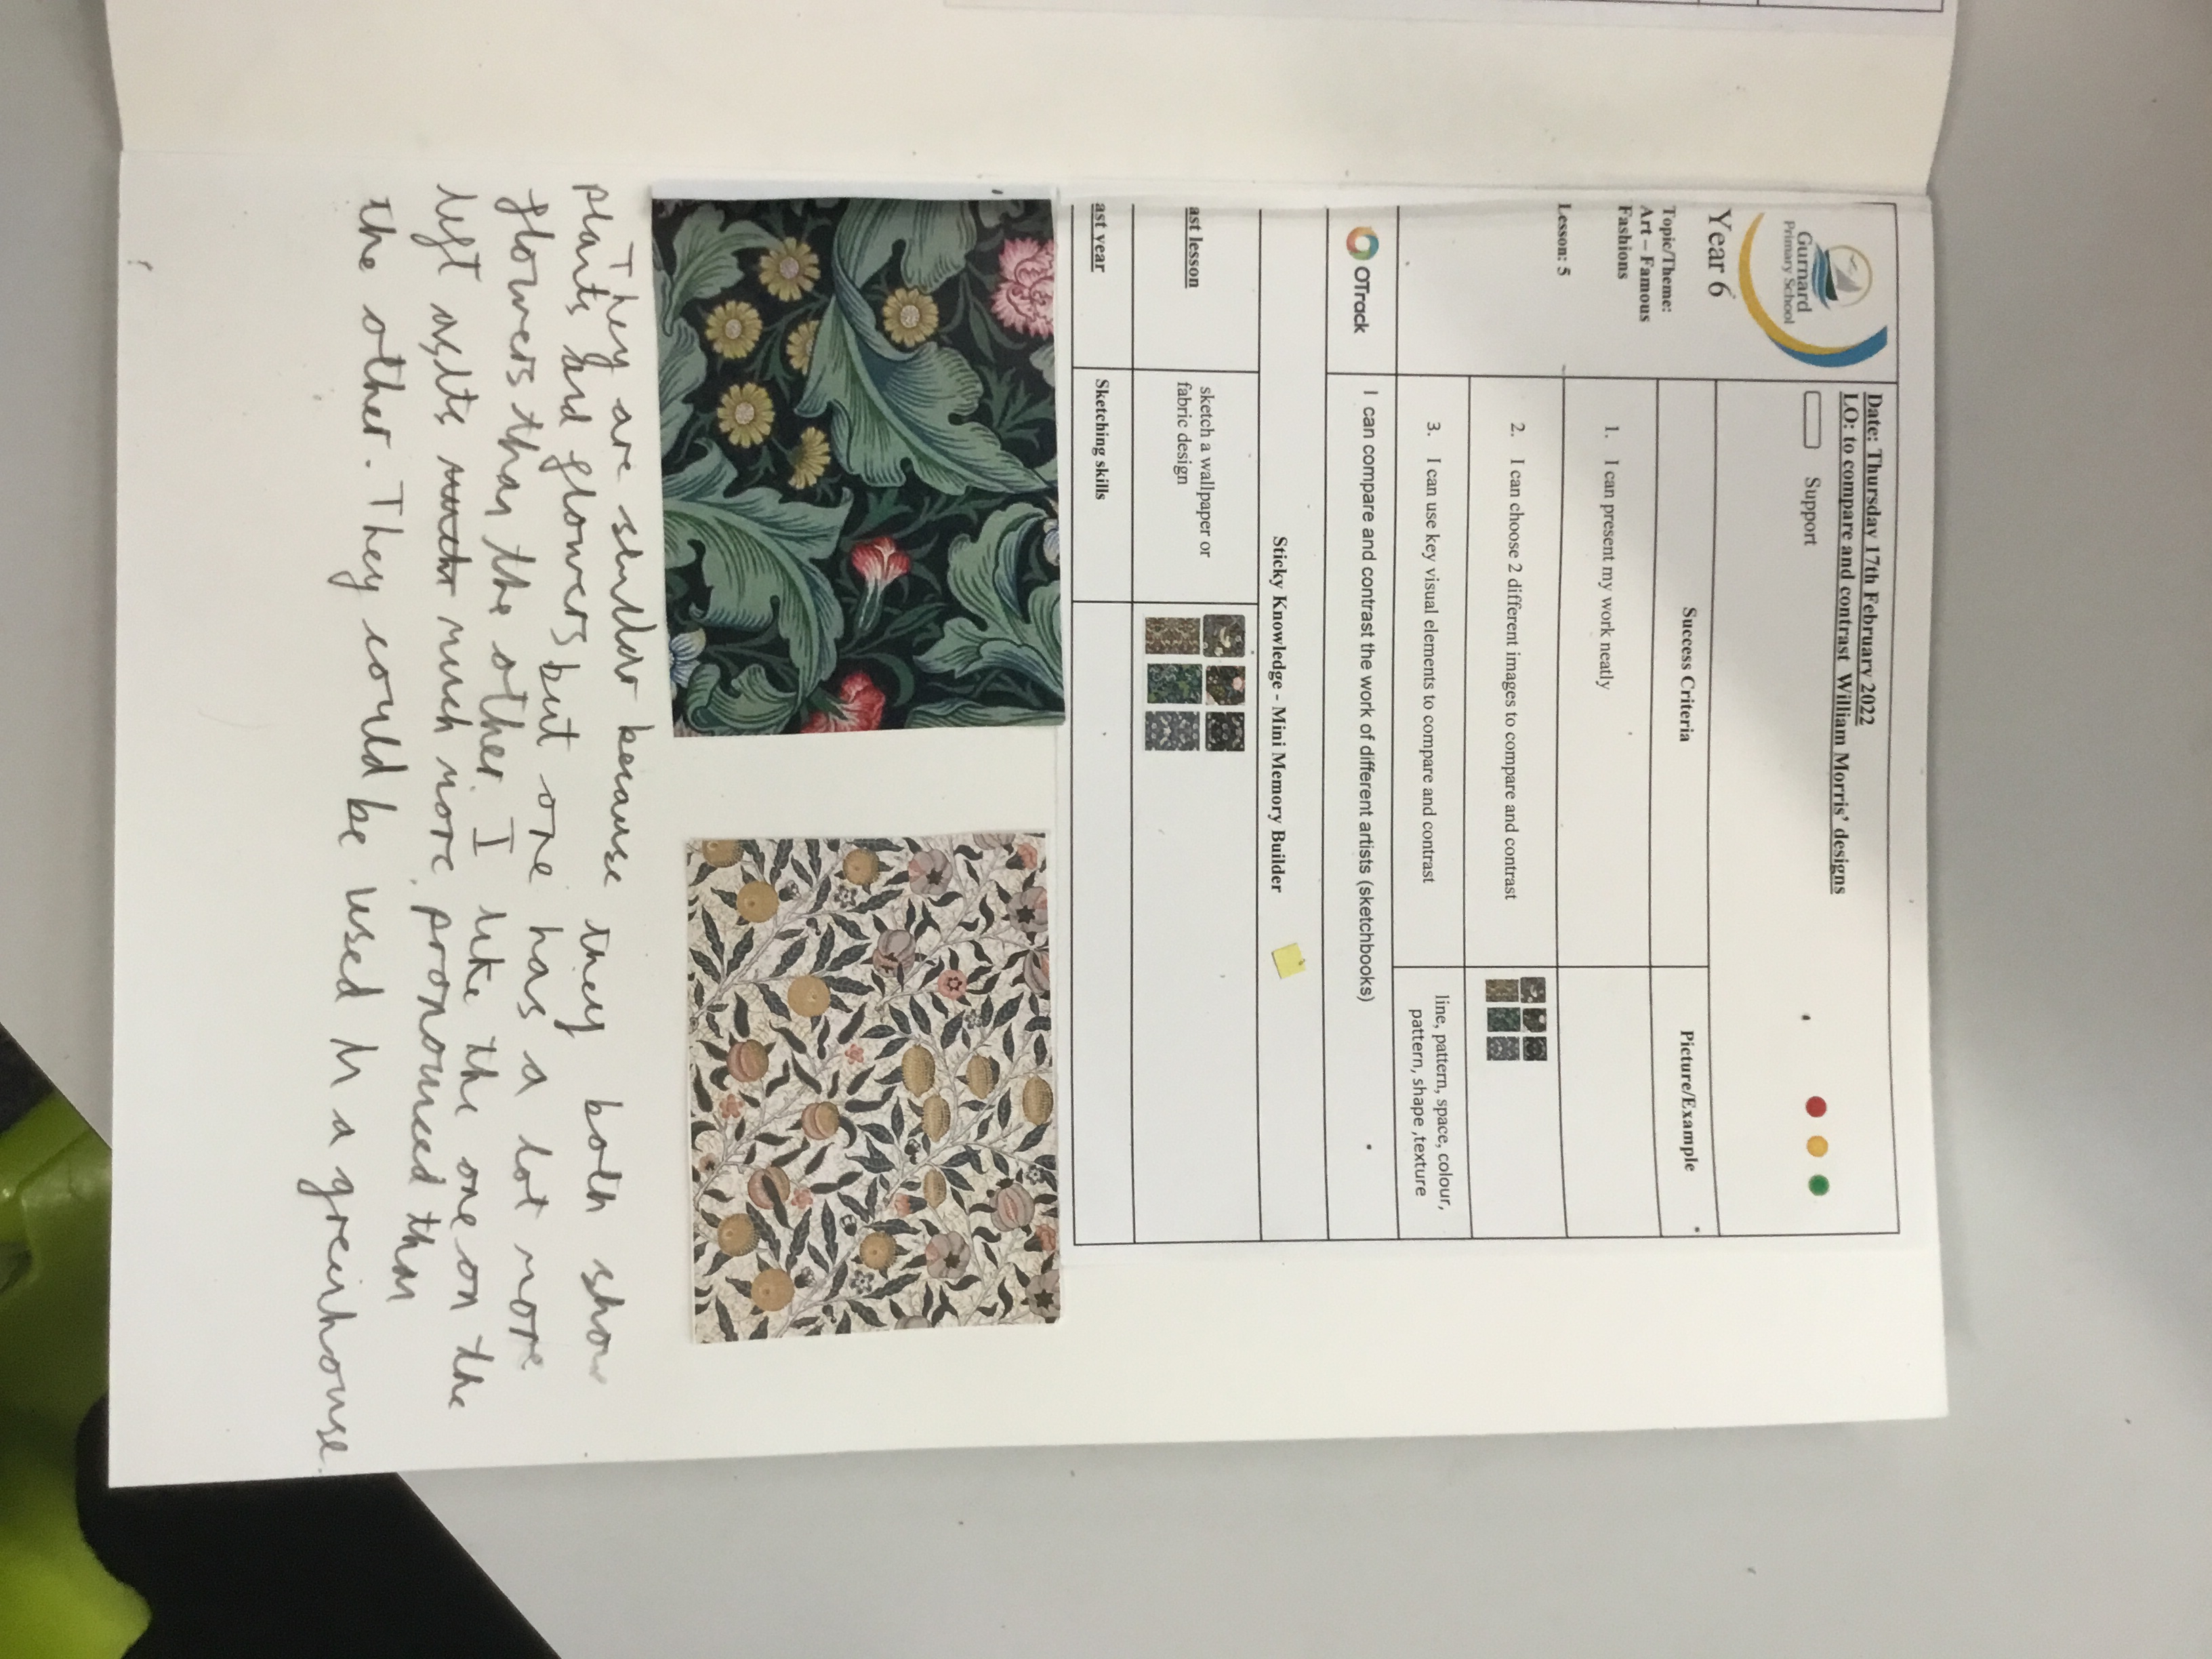 Gurnard
Primary School
Year 6
Topic/Theme:
Art – Famous
Fashions
Lesson: 5
Date: Thursday 17th February 2022
LO: to compare and contrast William Morris' designs
Support
Success Criteria
Picture/Example
1. I can present my work neatly
2. I can choose 2 different images to compare and contrast
3. I can use key visual elements to compare and contrast
line, pattern, space, colour,
pattern, shape ,texture
OTrack
I can compare and contrast the work of different artists (sketchbooks)
Sticky Knowledge - Mini Memory Builder
ast lesson
sketch a wallpaper or
fabric design
ast year
Sketching skills
They are similar because they both show
plants and flowers but one has a lot more
flowers than the other. I like the one on the
left as its much more pronounced than
the other. They could be used in a greenhouse.